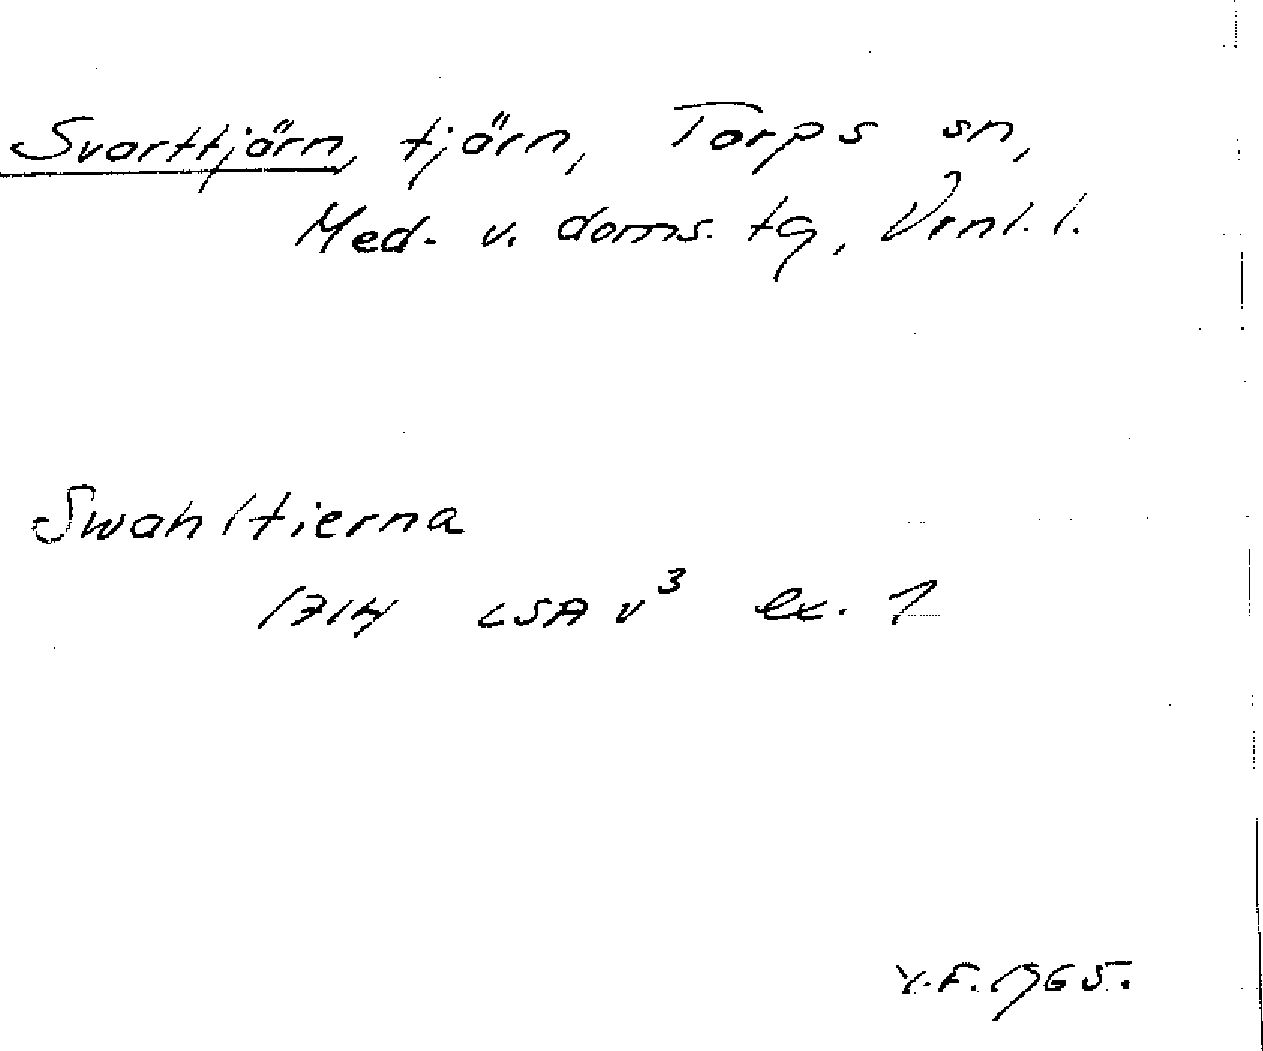 Svarttjärn, tjärn, Torps sn,
Med. v. doms. tg, Vrnl. l.
Swahltierna
1714 LSA v³ ex. 1
Y.F. 1965.